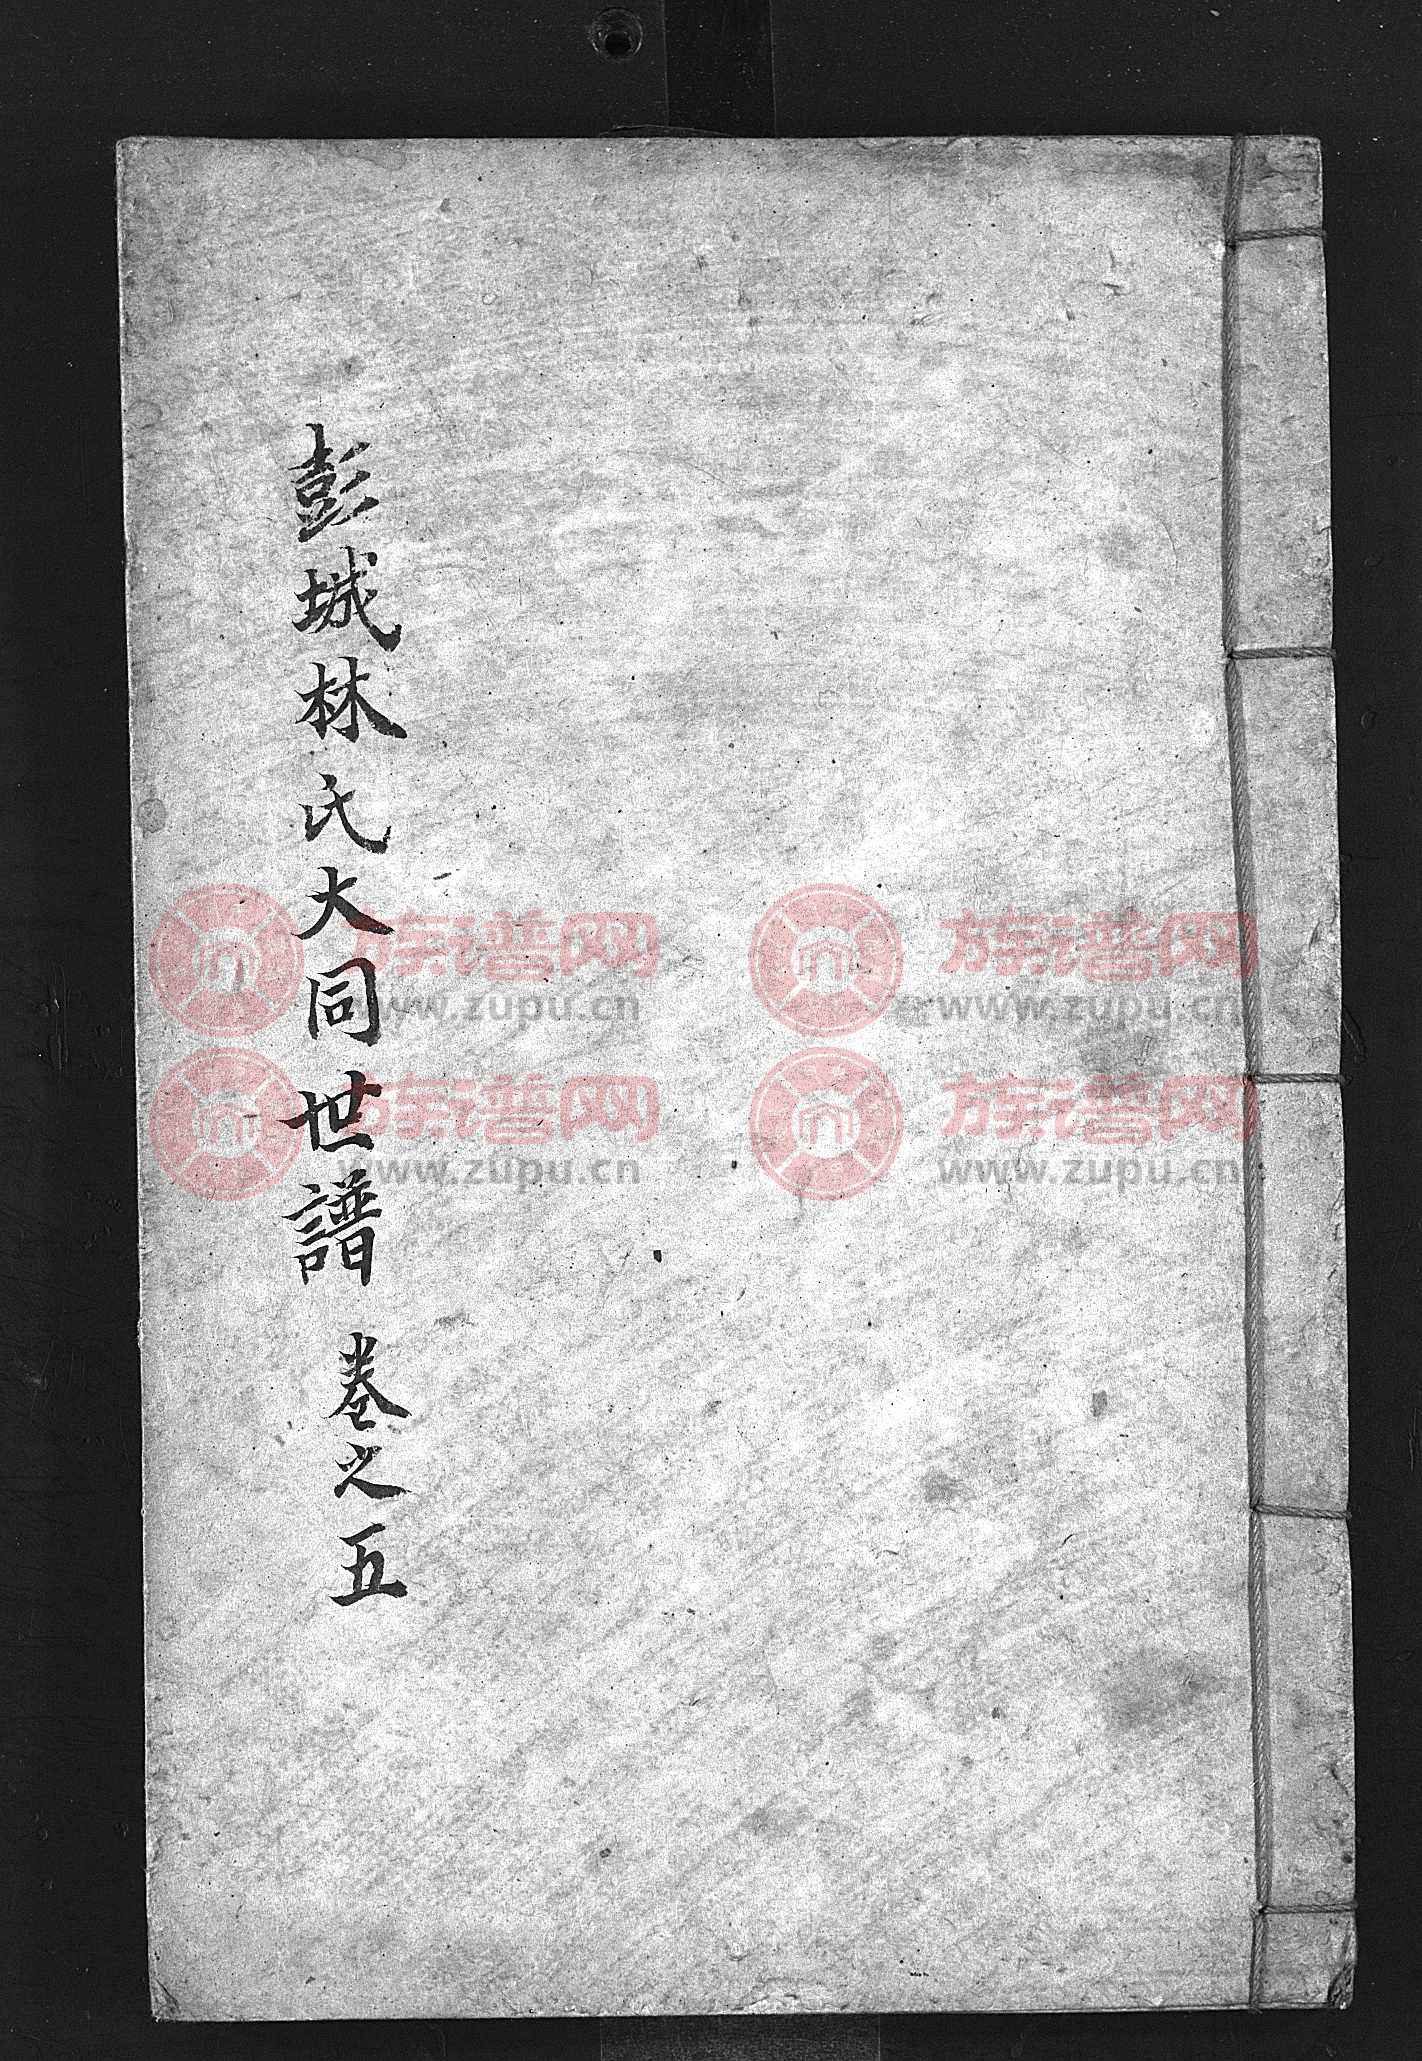 彭城林氏大同世譜 卷之五
族谱网 族谱网
www.zupu.cn www.zupu.cn
族谱网 族谱网
www.zupu.cn www.zupu.cn